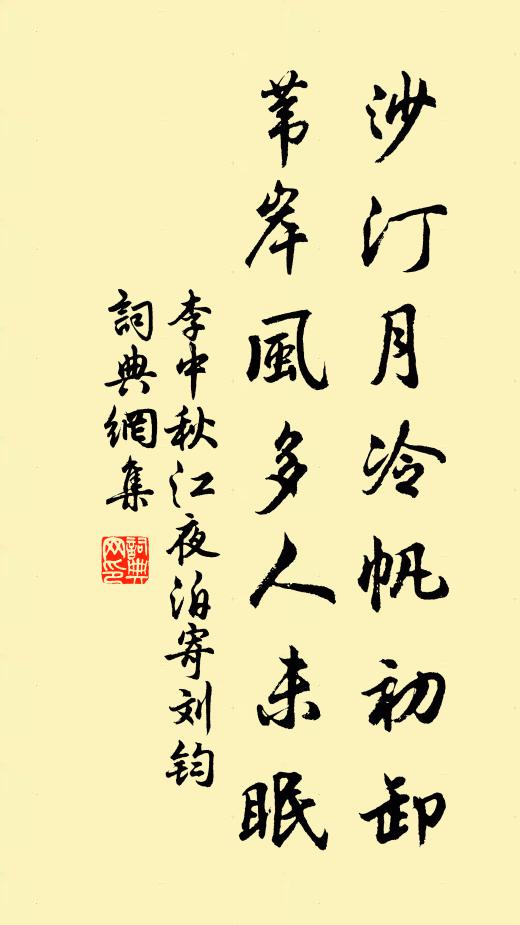 沙汀月冷帆初卸
苇岸風多人未眠
李中秋江夜泊寄刘钧
詞典網集
詞典網印